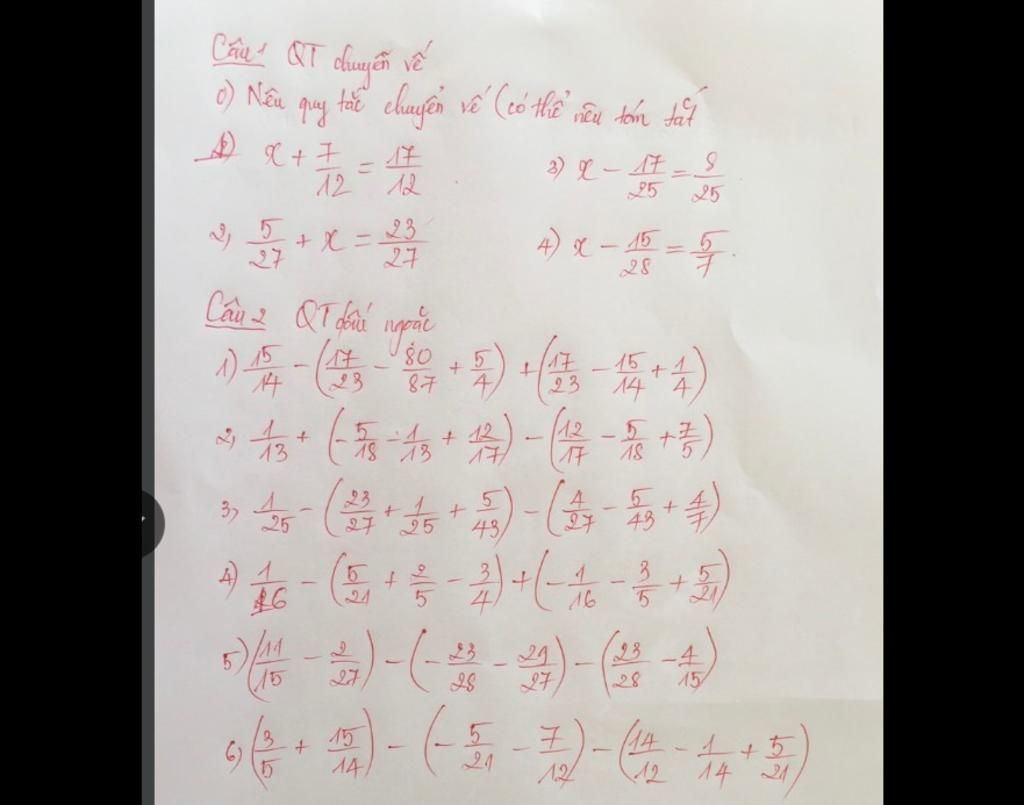 Câu 1 QT chuyển vế
0) Nêu quy tắc chuyển vế (có thể nêu tóm tắt
1) x + 7/12 = 17/12
3) x - 17/25 = 8/25
2, 5/27 + x = 23/27
4) x - 15/28 = 5/7.
Câu 2 QT dấu ngoặc
1) 15/14 - (17/23 - 80/87 + 5/4) + (17/23 - 15/14 + 1/4)
2, 1/13 + (-5/18 - 1/13 + 12/17) - (12/17 - 5/18 + 7/5)
3, 1/25 - (23/27 + 1/25 + 5/43) - (4/27 - 5/43 + 4/7)
4) 1/16 - (5/21 + 2/5 - 3/4) + (-1/16 - 3/5 + 5/21)
5) (11/15 - 2/27) - (-23/28 - 29/27) - (23/28 - 4/15)
6, (3/5 + 15/14) - (-5/21 - 7/12) - (14/12 - 1/14 + 5/21)